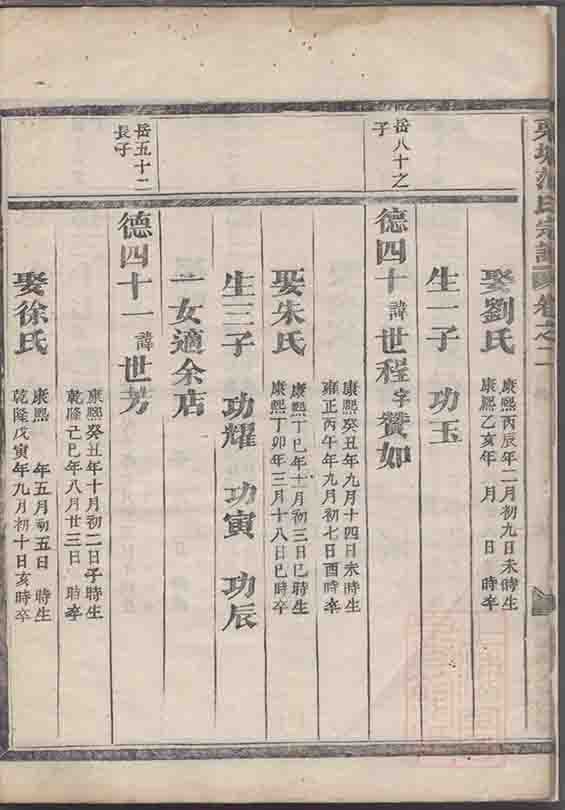 氏宗譜 卷之二
娶劉氏
康熙丙辰年二月初九日未時生
康熙乙亥年 月 日 時卒
生一子 功玉
岳八十之
子
德四十諱世程字贊如
康熙癸丑年九月十四日未時生
雍正丙午年九月初七日酉時卒
娶朱氏
康熙丁巳年十月初三日巳時生
康熙丁卯年三月十八日巳時卒
生三子 功耀 功寅 功辰
一女適余店
岳五十二
長子
德四十一諱世芳
康熙癸丑年十月初二日子時生
乾隆己巳年八月廿三日 時卒
娶徐氏
康熙 年五月初五日 時生
乾隆戊寅年九月初十日亥時卒